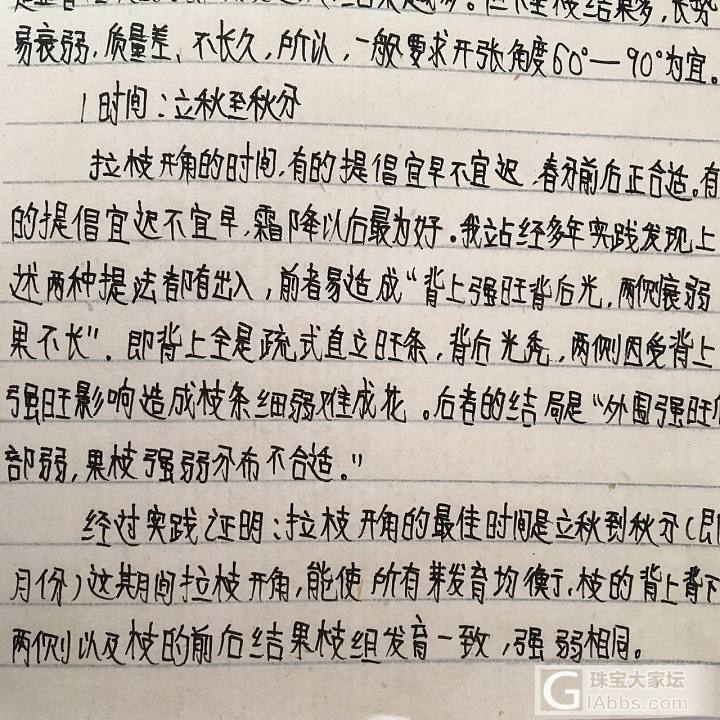 易衰弱,质量差、不长久,所以,一般要求开张角度60°—90°为宜。
1时间:立秋至秋分
拉枝开角的时间,有的提倡宜早不宜迟,春分前后正合适。有
的提倡宜迟不宜早,霜降以后最为好。我站经多年实践发现上
述两种提法都有出入,前者易造成“背上强旺背后光,两侧衰弱
果不长”。即背上全是疏式直立旺条,背后光秃,两侧因受背上
强旺影响造成枝条细弱难成花。后者的结局是“外围强旺
部弱,果枝强弱分布不合适。”
经过实践证明:拉枝开角的最佳时间是立秋到秋分(即
月份)这期间拉枝开角,能使所有芽发育均衡,枝的背上背下
两侧以及枝的前后结果枝组发育一致,强弱相同。
G 珠宝大家坛
IAbbs.com